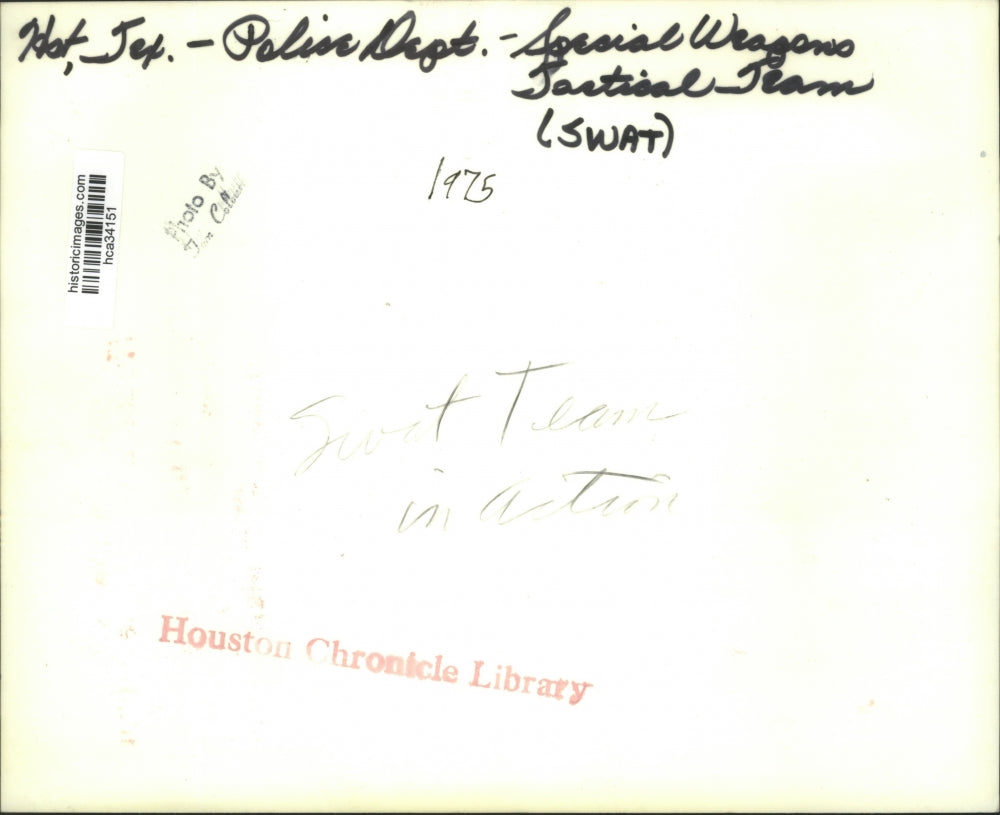 Hst, Tex. - Police Dept. - Special Weapons
Tactical Team
(SWAT)
1975
historicimages.com
hca34151
Photo By
Swat Team
in action
Houston Chronicle Library